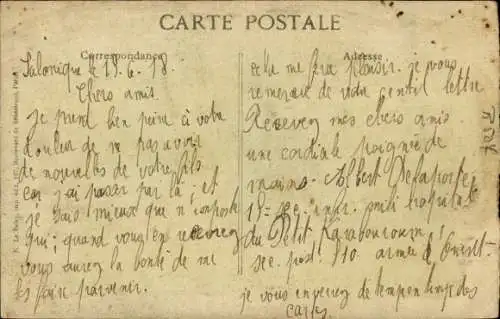 CARTE POSTALE
Correspondance
Adresse
Salonique le 15. 6. 18.
Chers amis
Je prend bien peine à votre
douleur de ne pas avoir
de nouvelles de votre fils
car j'ai passer par là ; et
je sais mieux que n'importe
qui ; quand vous en recevrez
vous aurez la bonté de me
les faire parvenir.
cela me fera plaisir. je vous
remercie de votre gentil lettre
Recevez mes chers amis
une cordiale poignée de
mains. Albert Delaporte
15e
du Petit Karabouroum
sec. post. 510. armée d'Orient.
je vous enverez de temps en temps des
cartes